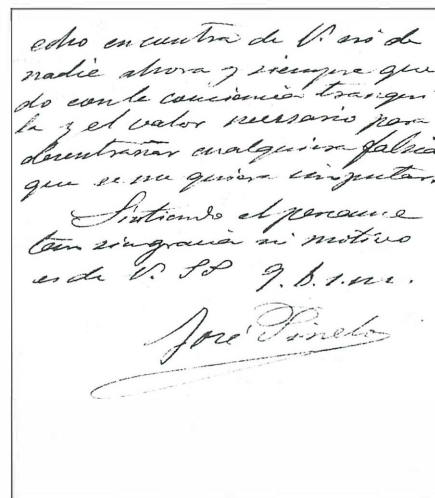 echo encuentra de V. así de
nadie ahora y siempre que
do con la conciencia tranqui
la y el valor nesesario para
desentrañar cualquiera falsia
que se me quiera imputar.
Sintiendo el percance
tan sin gracia ni motivo
es de V. SS q. b. s. m.
José Pinelo